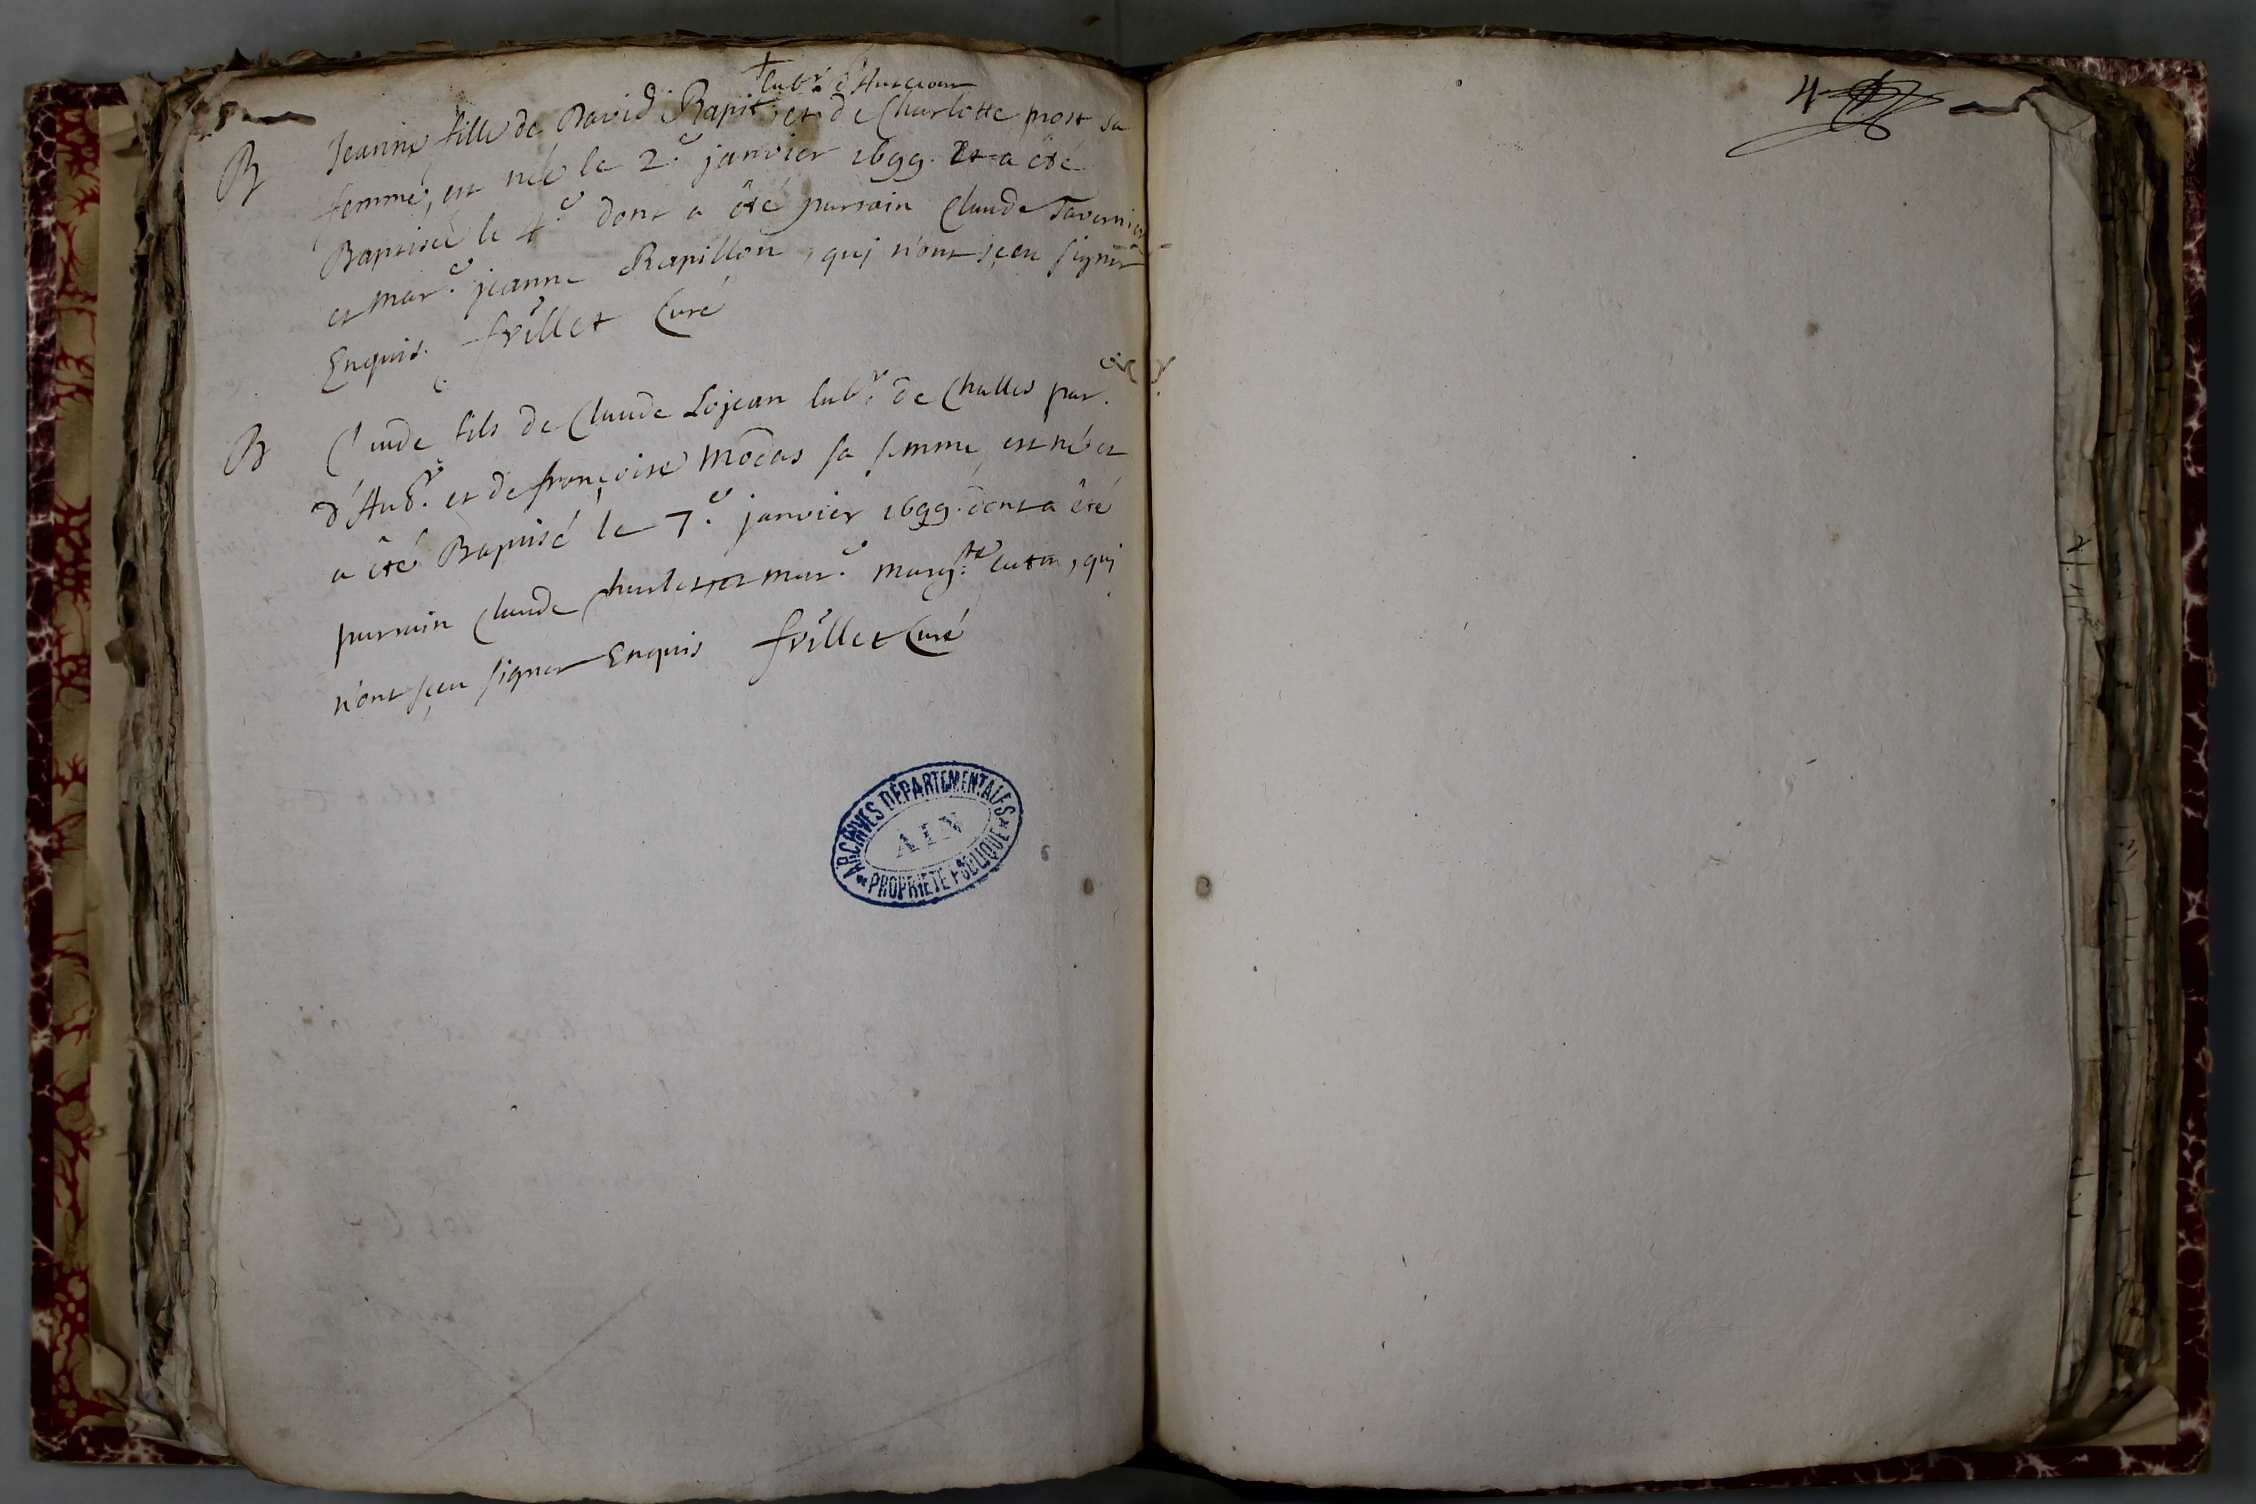 labr. d'Autecour
B Jeanne fille de David Rapit et de Charlotte prost sa
femme, est née le 2e. janvier 1699. Et a êté
Baptisée le 4e. dont a êté parrain Claude Tavernier
et mare. jeanne Rapillon, quj n'ont sçeu signer
Enquis. frillet Curé
B Claude fils de Claude Lojean labr. de Challes par.
d'Aubr. et de françoise Moēas sa femme, est né et
a êté Baptisé le 7e. janvier 1699. dont a êté
parrain Claude Charlet, et mare. margte. , quj
n'ont sçeu signer Enquis frillet Curé
ARCHIVES DÉPARTEMENTALES
AIN
PROPRIÉTÉ PUBLIQUE
4